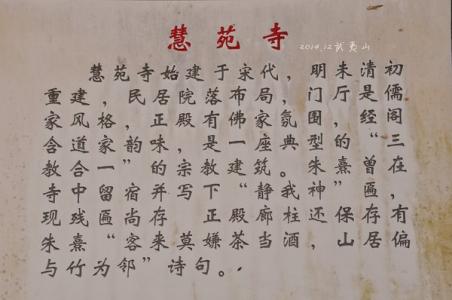 慧苑寺
2014.12 武夷山
慧苑寺始建于宋代，明末清初
重建，民居院落布局，门厅是儒
家风格，正殿有佛家氛围，经阁
含道家韵味，是一座典型的“三
教合一”的宗教建筑。朱熹曾在
寺中留宿并写下“静我神”匾，
现残匾尚存。正殿廊柱还保存有
朱熹“客来莫嫌茶当酒，山居偏
与竹为邻”诗句。